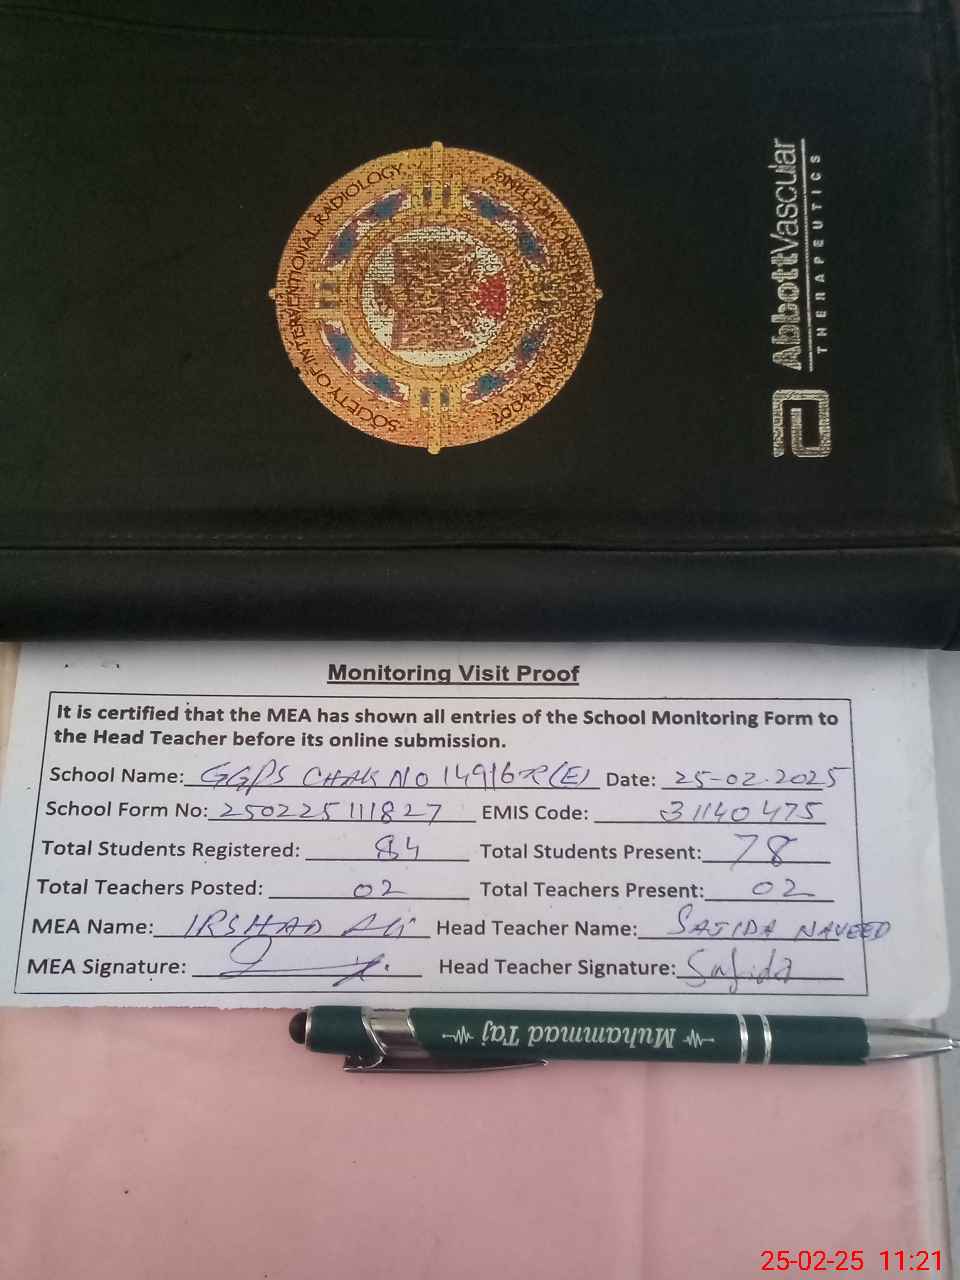 SOCIETY OF INTERVENTIONAL RADIOLOGY
AbbottVascular
THERAPEUTICS
Monitoring Visit Proof
It is certified that the MEA has shown all entries of the School Monitoring Form to
the Head Teacher before its online submission.
School Name: GGPS CHAK NO 149/6R(E) Date: 25-02-2025
School Form No: 250225111827 EMIS Code: 31140475
Total Students Registered: 84 Total Students Present: 78
Total Teachers Posted: 02 Total Teachers Present: 02
MEA Name: IRSHAD Ali Head Teacher Name: SAJIDA NAVEED
MEA Signature: Head Teacher Signature: Sajida
Muhammad Taj
25-02-25 11:21